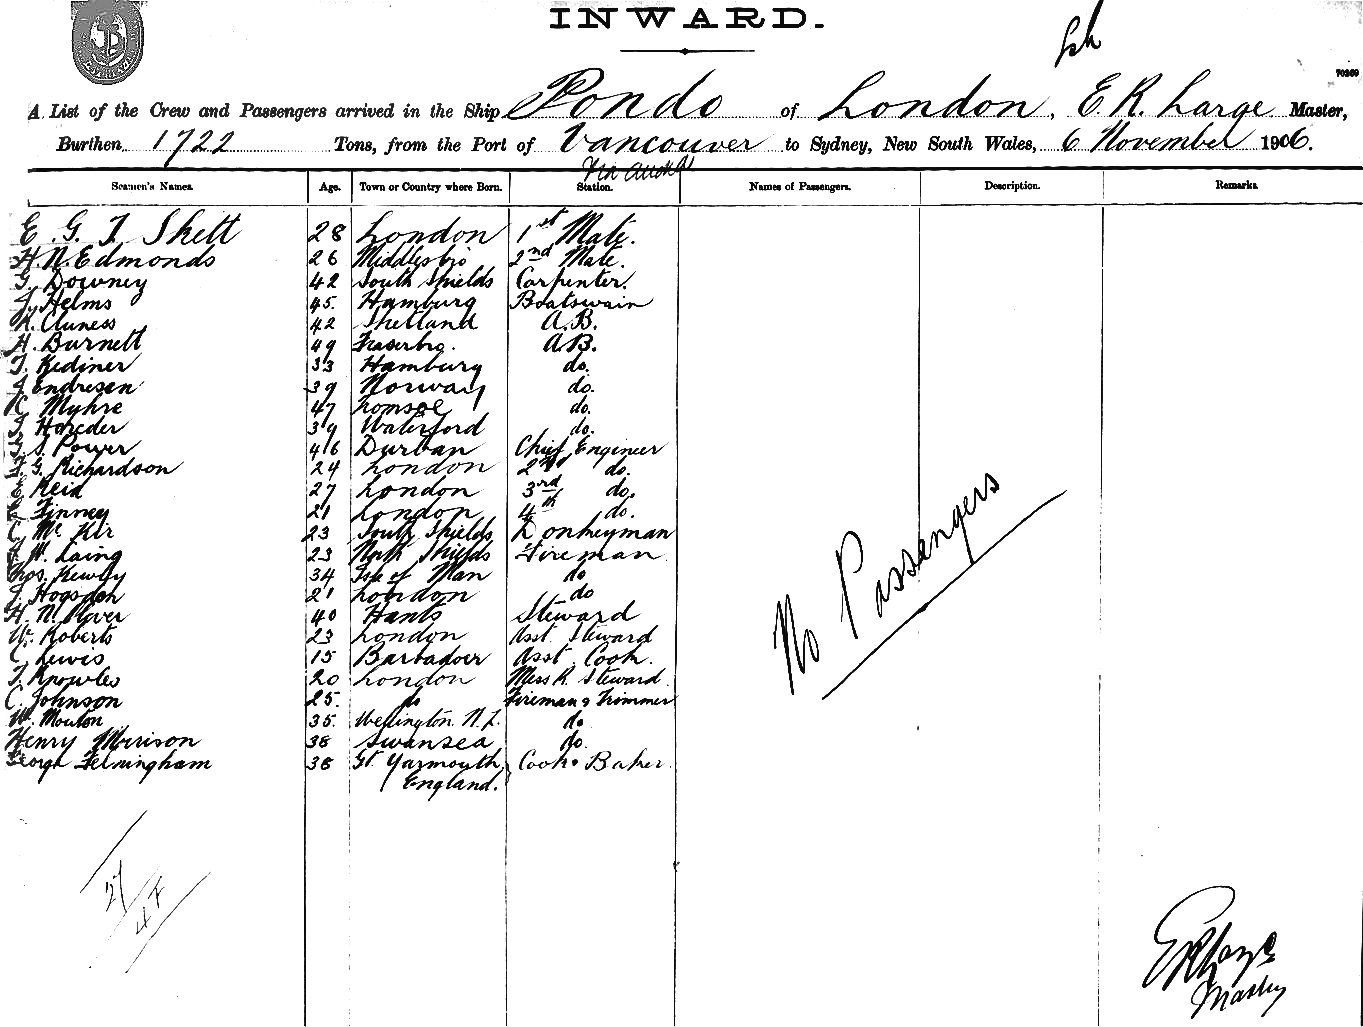 INWARD.
70269
A List of the Crew and Passengers arrived in the Ship Pondo of London, E. R. Large Master,
Burthen 1722 Tons, from the Port of Vancouver to Sydney, New South Wales, 6 November 1906.
Via
Seamen's Names. Age. Town or Country where Born. Station. Names of Passengers. Description. Remarks
E. G. T. Skett 28 London 1st Mate.
H. N. Edmonds 26 Middlesbro 2nd Mate.
Downey 42 South Shields Carpenter.
J. Helms 45. Hamburg Boatswain
Cluness 42 Shetland A.B.
H. Burnett 49 Fraserbro. A.B.
Kediner 33 Hamburg do.
Endresen 39 Norway do.
Myhre 47 do.
Horeder 39 Waterford do.
S. Power 46 Durban Chief Engineer
G. Richardson 24 London 2nd do.
Reid 27 London 3rd do.
Finney 21 London 4th do.
Mc Kir 23 South Shields Donkeyman
W. Laing 23 North Shields Fireman
Thos. Kewly 34 Isle of Man do
Hogsden 21 London do
H. N. 40 Hants Steward
W. Roberts 23 London Asst. Steward
C. Lewis 15 Barbadoes Asst. Cook.
T. Knowles 20 London Mess R. Steward.
C. Johnson 25. do Fireman & Trimmer
W. Mouton 35. Wellington N.Z. do
Henry Morrison 38 Swansea do.
George Felmingham 38 Gt. Yarmouth, Cook & Baker.
England.
No Passengers
27
47
E R Large
Master